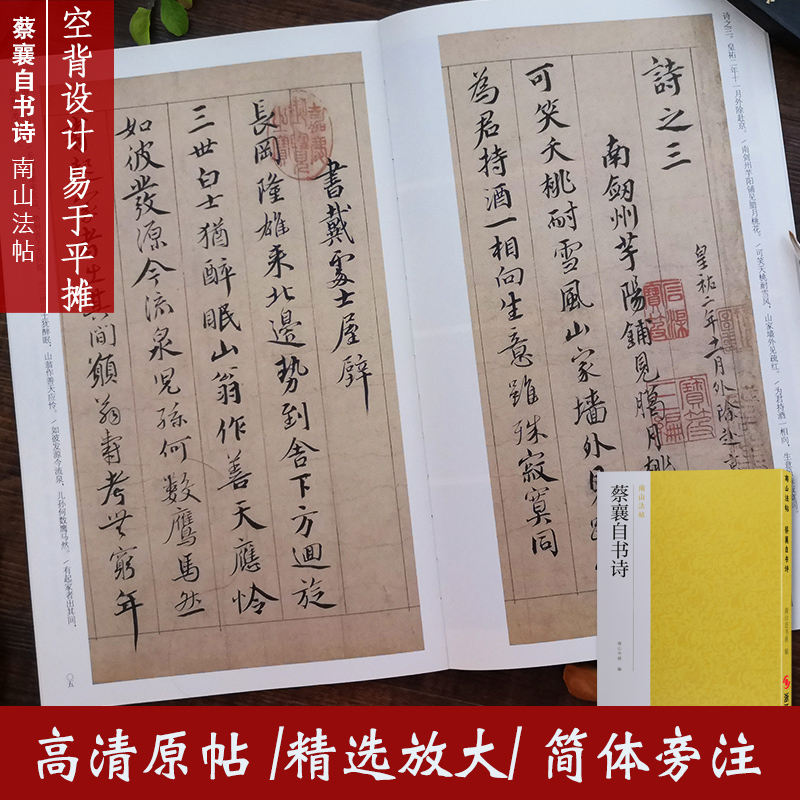 空背设计 易于平摊
蔡襄自书诗 南山法帖
诗之三。皇祐二年十一月外除赴京。/南剑州芋阳铺见腊月桃花。/可笑夭桃耐雪风，山家墙外见疏红。/为君持酒一相向，生意
詩之三
皇祐二年十一月外除赴京
南劔州芋陽鋪見臘月桃
可笑夭桃耐雪風山家墻外見
為君持酒一相向生意雖殊寂寞同
書戴處士屋壁
長岡隆雄来北邊勢到舍下方迴旋
三世白士猶醉眠山翁作善天應怜
如彼發源今流泉児孫何數鷹馬然
其間願翁壽考無窮年
犹醉眠，山翁作善天应怜。/如彼发源今流泉，儿孙何数鹰马然。/有起家者出其间，
〇五
南山法帖
蔡襄自书诗
南山法帖 蔡襄自书诗
高清原帖/精选放大/简体旁注